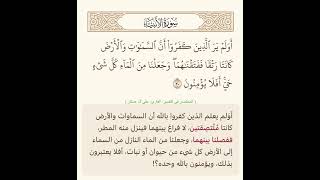 سورة الأنبياء
أَوَلَمْ يَرَ ٱلَّذِينَ كَفَرُوٓا۟ أَنَّ ٱلسَّمَـٰوَٰتِ وَٱلْأَرْضَ
كَانَتَا رَتْقًا فَفَتَقْنَـٰهُمَا ۖ وَجَعَلْنَا مِنَ ٱلْمَآءِ كُلَّ شَىْءٍ
حَىٍّ ۖ أَفَلَا يُؤْمِنُونَ ٣٠
أولم يعلم الذين كفروا بالله أن السماوات والأرض
كانتا مُلْتصِقتين، لا فراغ بينهما فينزل منه المطر،
ففصلنا بينهما، وجعلنا من الماء النازل من السماء
إلى الأرض كل شيء من حيوان أو نبات، أفلا يعتبرون
بذلك، ويؤمنون بالله وحده؟!